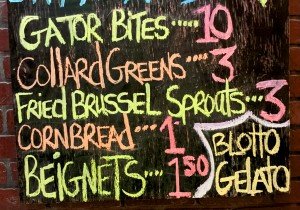 GATOR BITES.....10
COLLARD GREENS...3
FRIED BRUSSEL SPROUTS...3
CORNBREAD...1
BEIGNETS...1.50
BLOTTO
GELATO